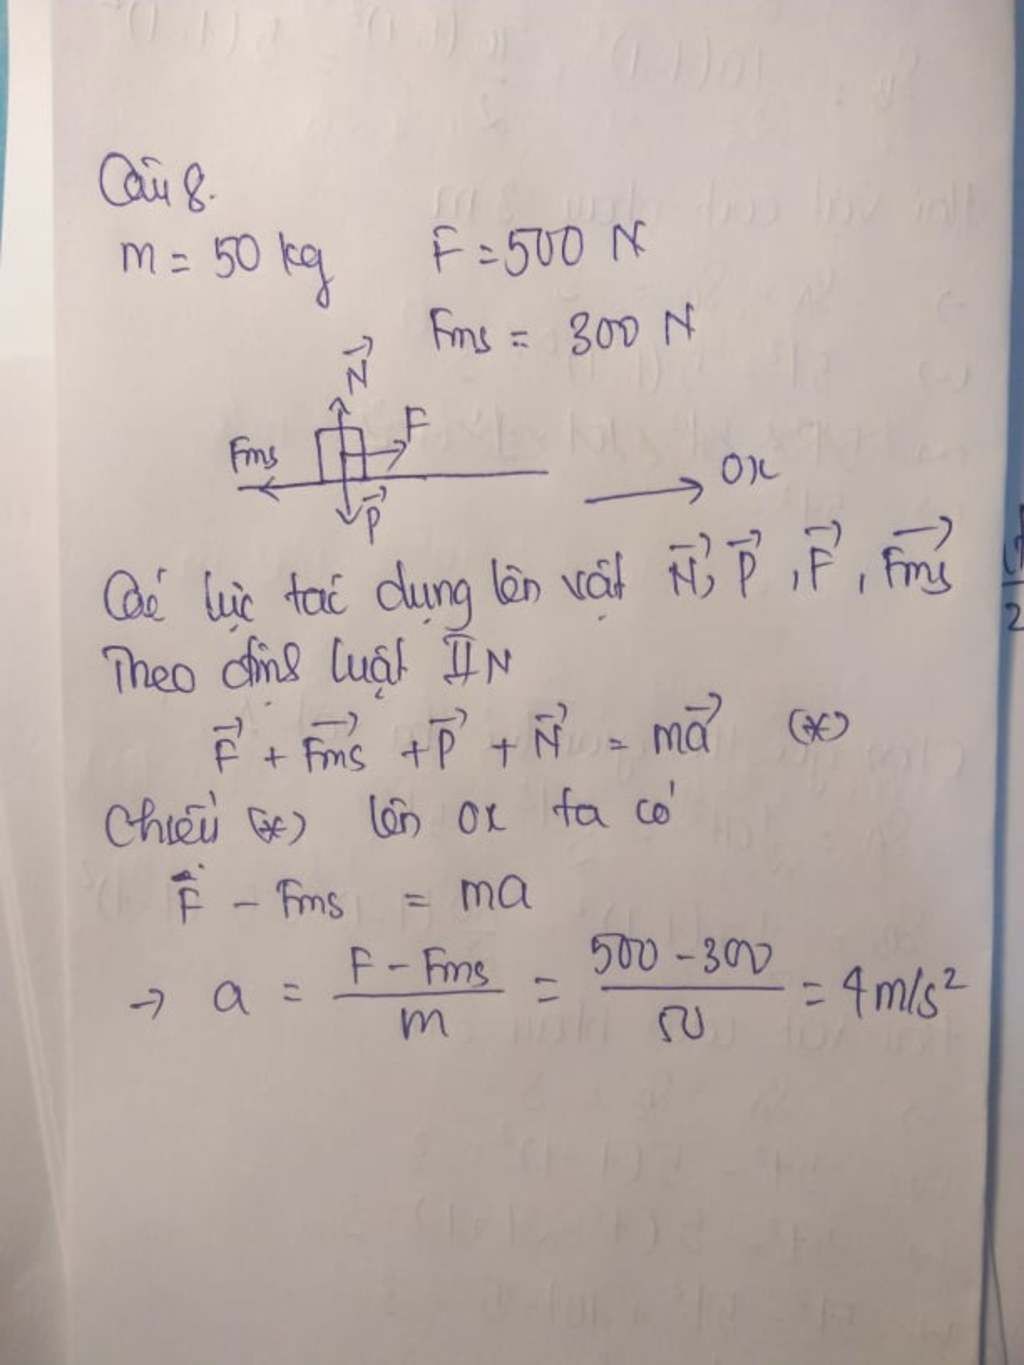 Câu 8.
m = 50 kg F = 500 N
Fms = 300 N
N⃗
Fms F
P⃗ Ox
Các lực tác dụng lên vật N⃗, P⃗, F⃗, F⃗ms
Theo định luật II N
F⃗ + F⃗ms + P⃗ + N⃗ = ma⃗ (*)
Chiếu (*) lên Ox ta có
F - Fms = ma
→ a = (F - Fms)/m = (500 - 300)/50 = 4 m/s²